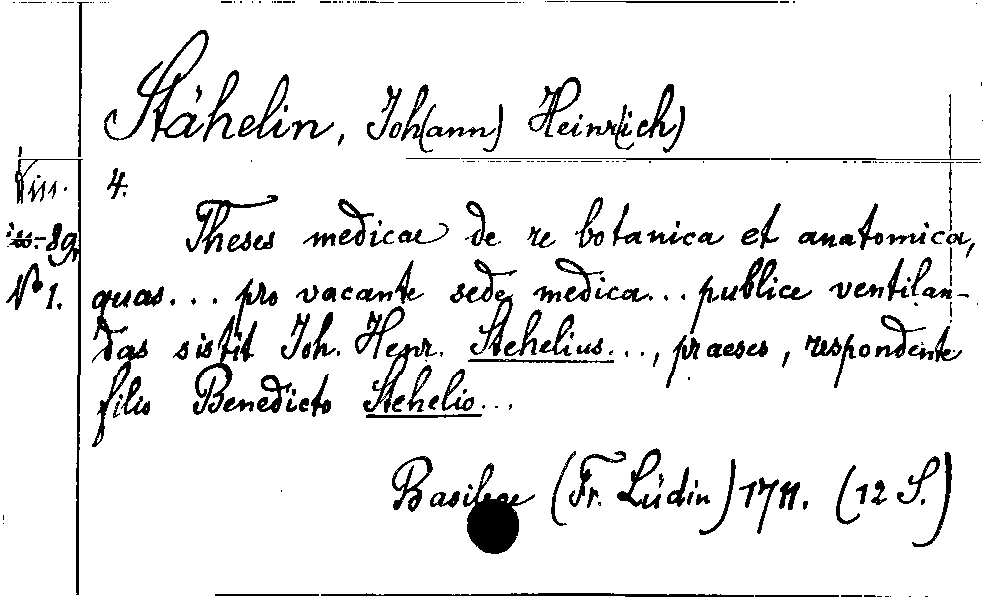 Stähelin, Joh(ann) Heinr(ich)
Diss. 4.
89,
No 1.
Theses medicae de re botanica et anatomica,
quas... pro vacante sede medica... publice ventilan-
das sistit Joh. Henr. Stehelius..., praeses, respondente
filio Benedicto Stehelio...
Basileae (Fr. Lüdin) 1711. (12 S.)